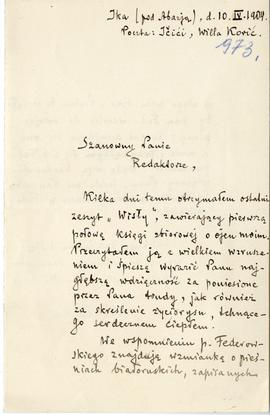 Ika (pod Abazją), d. 10. IV. 1904.
Poczta: Ičići, Willa Korić.
973.
Szanowny Panie
Redaktorze,
Kilka dni temu otrzymałem ostatni
zeszyt „Wisły", zawierający pierwszą
połowę Księgi zbiorowej o ojcu moim.
Przeczytałem ją z wielkiem wzrusze-
niem i śpieszę wyrazić Panu naj-
głębszą wdzięczność za poniesione
przez Pana trudy, jak również
za skreślenie życiorysu, tchnące-
go serdecznem ciepłem.
We wspomnieniu p. Federow-
skiego znajduję wzmiankę o pieś-
niach białoruskich, zapisanych